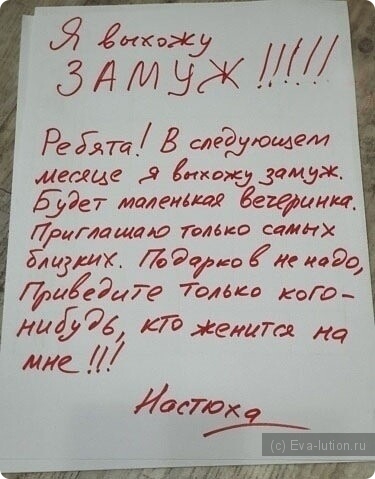 Я выхожу
ЗАМУЖ !!!!!!
Ребята! В следующем
месяце я выхожу замуж.
Будет маленькая вечеринка.
Приглашаю только самых
близких. Подарков не надо,
Приведите только кого-
нибудь, кто женится на
мне !!!
Настюха
(c) Eva-lution.ru